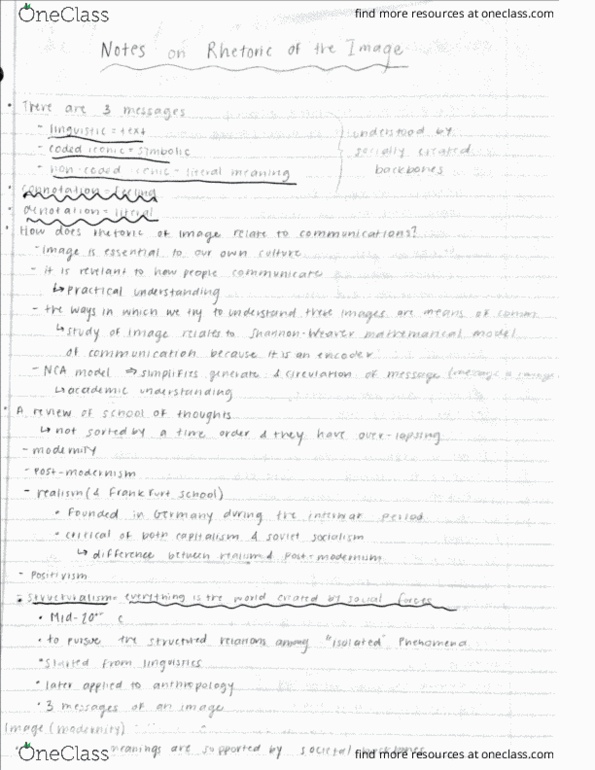 OneClass
find more resources at oneclass.com
Notes on Rhetoric of the Image
• There are 3 messages
- linguistic = text
- coded iconic = symbolic
- non-coded iconic = literal meaning
understood by
socially created
backbones
• connotation = feeling
• denotation = literal
• How does rhetoric of image relate to communications?
- image is essential to our own culture
- it is relevant to how people communicate
↳ practical understanding
- the ways in which we try to understand these images are means of comm.
↳ study of image relates to Shannon-Weaver mathematical model
of communication because it is an encoder
- NCA model ⇒ simplifies generate & circulation of message (message is
↳ academic understanding
• A review of school of thoughts
↳ not sorted by a time order & they have over-lapsing
- modernity
- Post-modernism
- realism (& Frankfurt school)
• Founded in Germany during the interwar period
• critical of both capitalism & soviet socialism
↳ difference between realism & post-modernism
- Positivism
- Structuralism = everything is the world created by social forces
• Mid-20th c
• to pursue the structured relations among "isolated" phenomena
• Started from linguistics
• later applied to anthropology
• 3 messages of an image
Image (modernity)
meanings are supported by societal backbones
OneClass
find more resources at oneclass.com